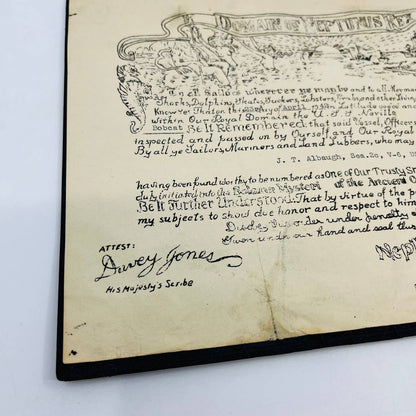 DOMAIN OF NEPTUNUS RE
To all Sailors wherever ye may be and to all Mermai
Sharks, Dolphins, Skates, Suckers, Lobsters, Crabs and other Living
Know ye: That on this day of April Latitude 00000 and
within Our Royal Domain the U.S.S. Neville
Be It Remembered that said Vessel, Officers
inspected and passed on by Ourself and Our Royal
By all ye Sailors, Mariners and Land Lubbers, who may
J. T. Albaugh, Sea.2c, V-6,
having been found worthy to be numbered as One of Our Trusty S
duly initiated into the Solemn Mystery of the Ancient O
Be It Further Understood: That by virtue of the p
my subjects to show due honor and respect to him
Disobey this order under penalty
Given under our hand and seal this
Nep
ATTEST:
Davey Jones
His Majesty's Scribe